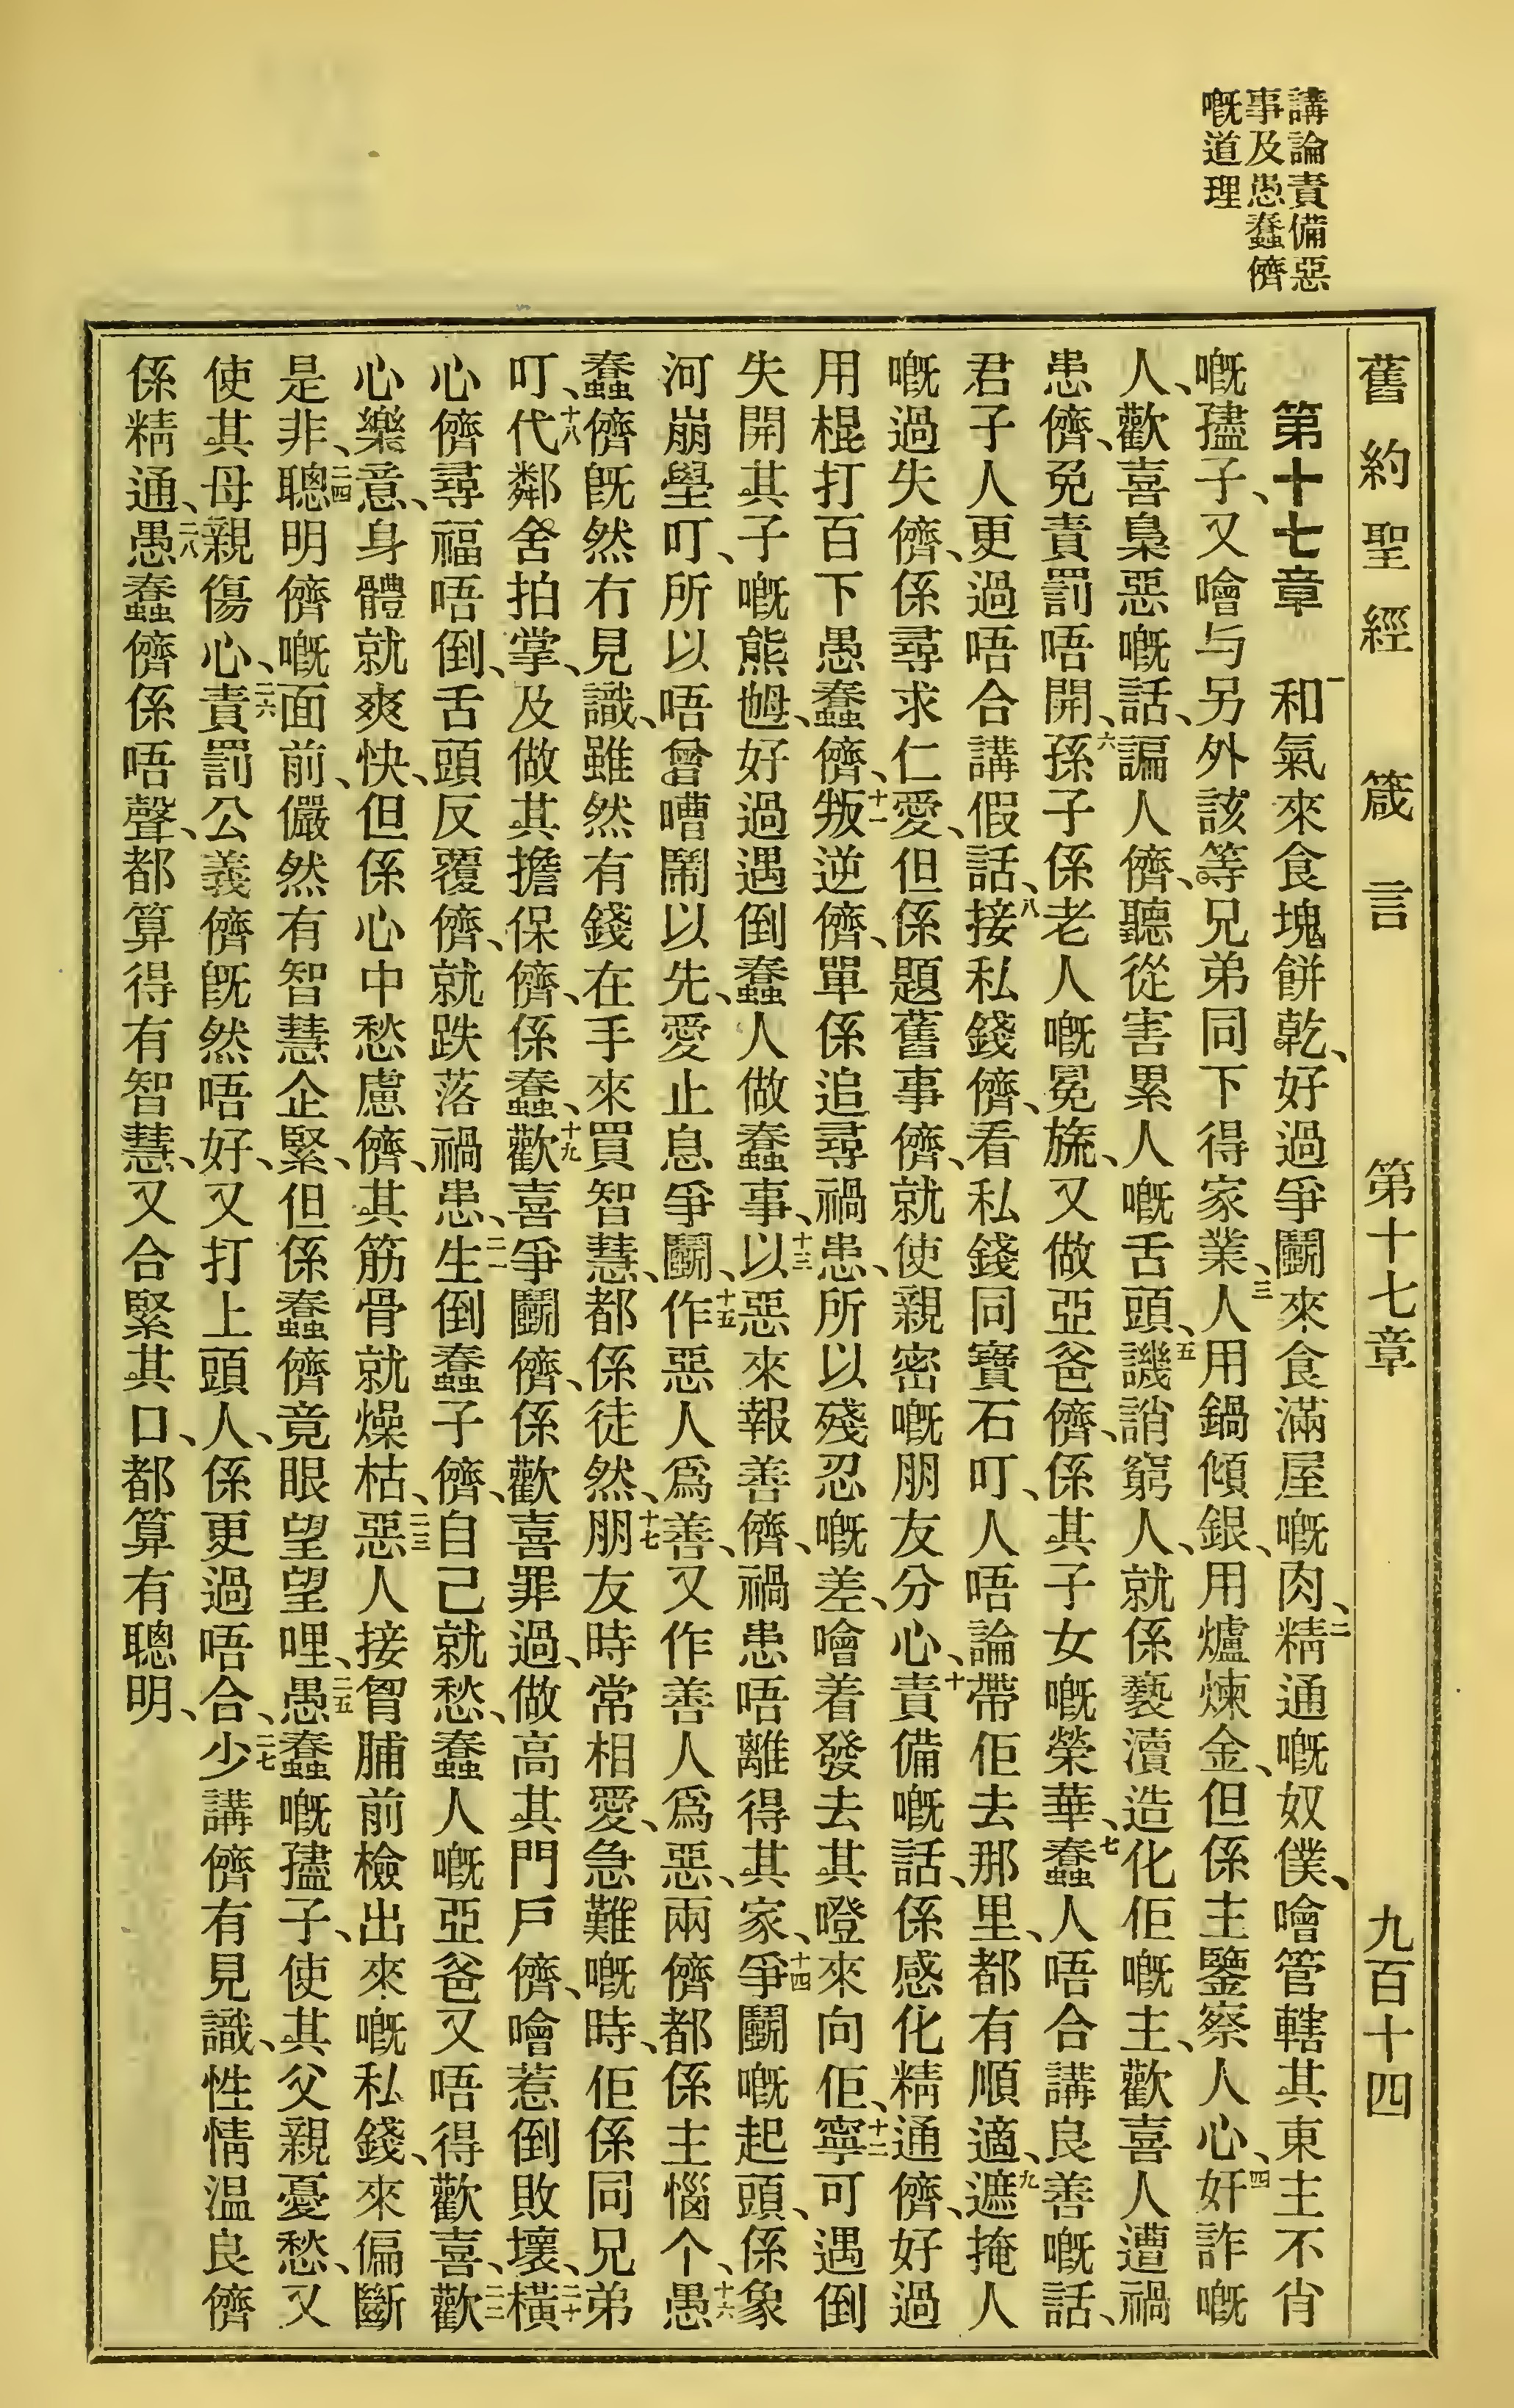 講論責備惡
事及愚蠢儕
嘅道理
舊約聖經 箴言 第十七章 九百十四
第十七章 一和氣來食塊餅乾、好過爭鬬來食滿屋嘅肉、二精通嘅奴僕、噲管轄其東主不肖
嘅孻子、又噲与另外該等兄弟同下得家業、三人用鍋傾銀、用爐煉金、但係主鑒察人心、四奸詐嘅
人、歡喜梟惡嘅話、諞人儕、聽從害累人嘅舌頭、五譏誚窮人、就係褻瀆造化佢嘅主、歡喜人遭禍
患儕、免責罰唔開、六孫子係老人嘅冕旒、又做亞爸儕、係其子女嘅榮華、七蠢人唔合講良善嘅話、
君子人更過唔合講假話、八接私錢儕、看私錢同寶石叮、人唔論帶佢去那里、都有順適、九遮掩人
嘅過失儕、係尋求仁愛、但係題舊事儕、就使親密嘅朋友分心、十責備嘅話、係感化精通儕、好過
用棍打百下愚蠢儕、十一叛逆儕、單係追尋禍患、所以殘忍嘅差、噲着發去其噔來向佢、十二寧可遇倒
失開其子嘅熊乸、好過遇倒蠢人做蠢事、十三以惡來報善儕、禍患唔離得其家、十四爭鬬嘅起頭、係象
河崩壆叮、所以唔曾嘈鬧以先、愛止息爭鬬、十五作惡人爲善、又作善人爲惡、兩儕都係主惱个、十六愚
蠢儕既然冇見識、雖然有錢在手來買智慧、都係徒然、十七朋友時常相愛、急難嘅時、佢係同兄弟
叮、十八代鄰舍拍掌、及做其擔保儕、係蠢、十九歡喜爭鬬儕、係歡喜罪過、做高其門戶儕、噲惹倒敗壞、二十橫
心儕尋福唔倒、舌頭反覆儕、就跌落禍患、二一生倒蠢子儕、自己就愁、蠢人嘅亞爸又唔得歡喜、二二歡
心樂意、身體就爽快、但係心中愁慮儕、其筋骨就燥枯、二三惡人接胷脯前檢出來嘅私錢、來偏斷
是非、二四聰明儕嘅面前、儼然有智慧企緊、但係蠢儕竟眼望望哩、二五愚蠢嘅孻子、使其父親憂愁、又
使其母親傷心、二六責罰公義儕既然唔好、又打上頭人、係更過唔合、二七少講儕有見識、性情温良儕
係精通、二八愚蠢儕係唔聲、都算得有智慧、又合緊其口、都算有聰明、